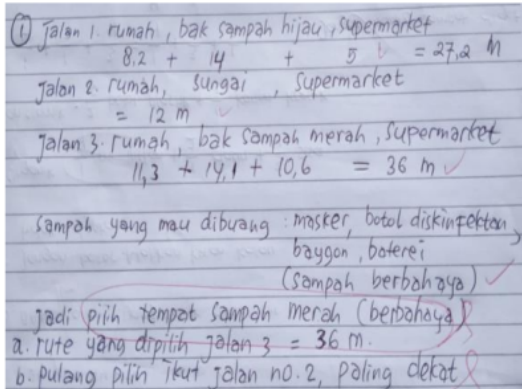 ① Jalan 1. rumah, bak sampah hijau, supermarket
8.2 + 14 + 5 = 27,2 m
Jalan 2. rumah, sungai, supermarket
= 12 m
Jalan 3. rumah, bak sampah merah, supermarket
11,3 + 14,1 + 10,6 = 36 m
sampah yang mau dibuang : masker, botol diskinfektan,
baygon, baterei
(sampah berbahaya)
jadi pilih tempat sampah merah (berbahaya)
a. rute yang dipilih jalan 3 = 36 m.
b. pulang pilih ikut jalan no. 2, paling dekat